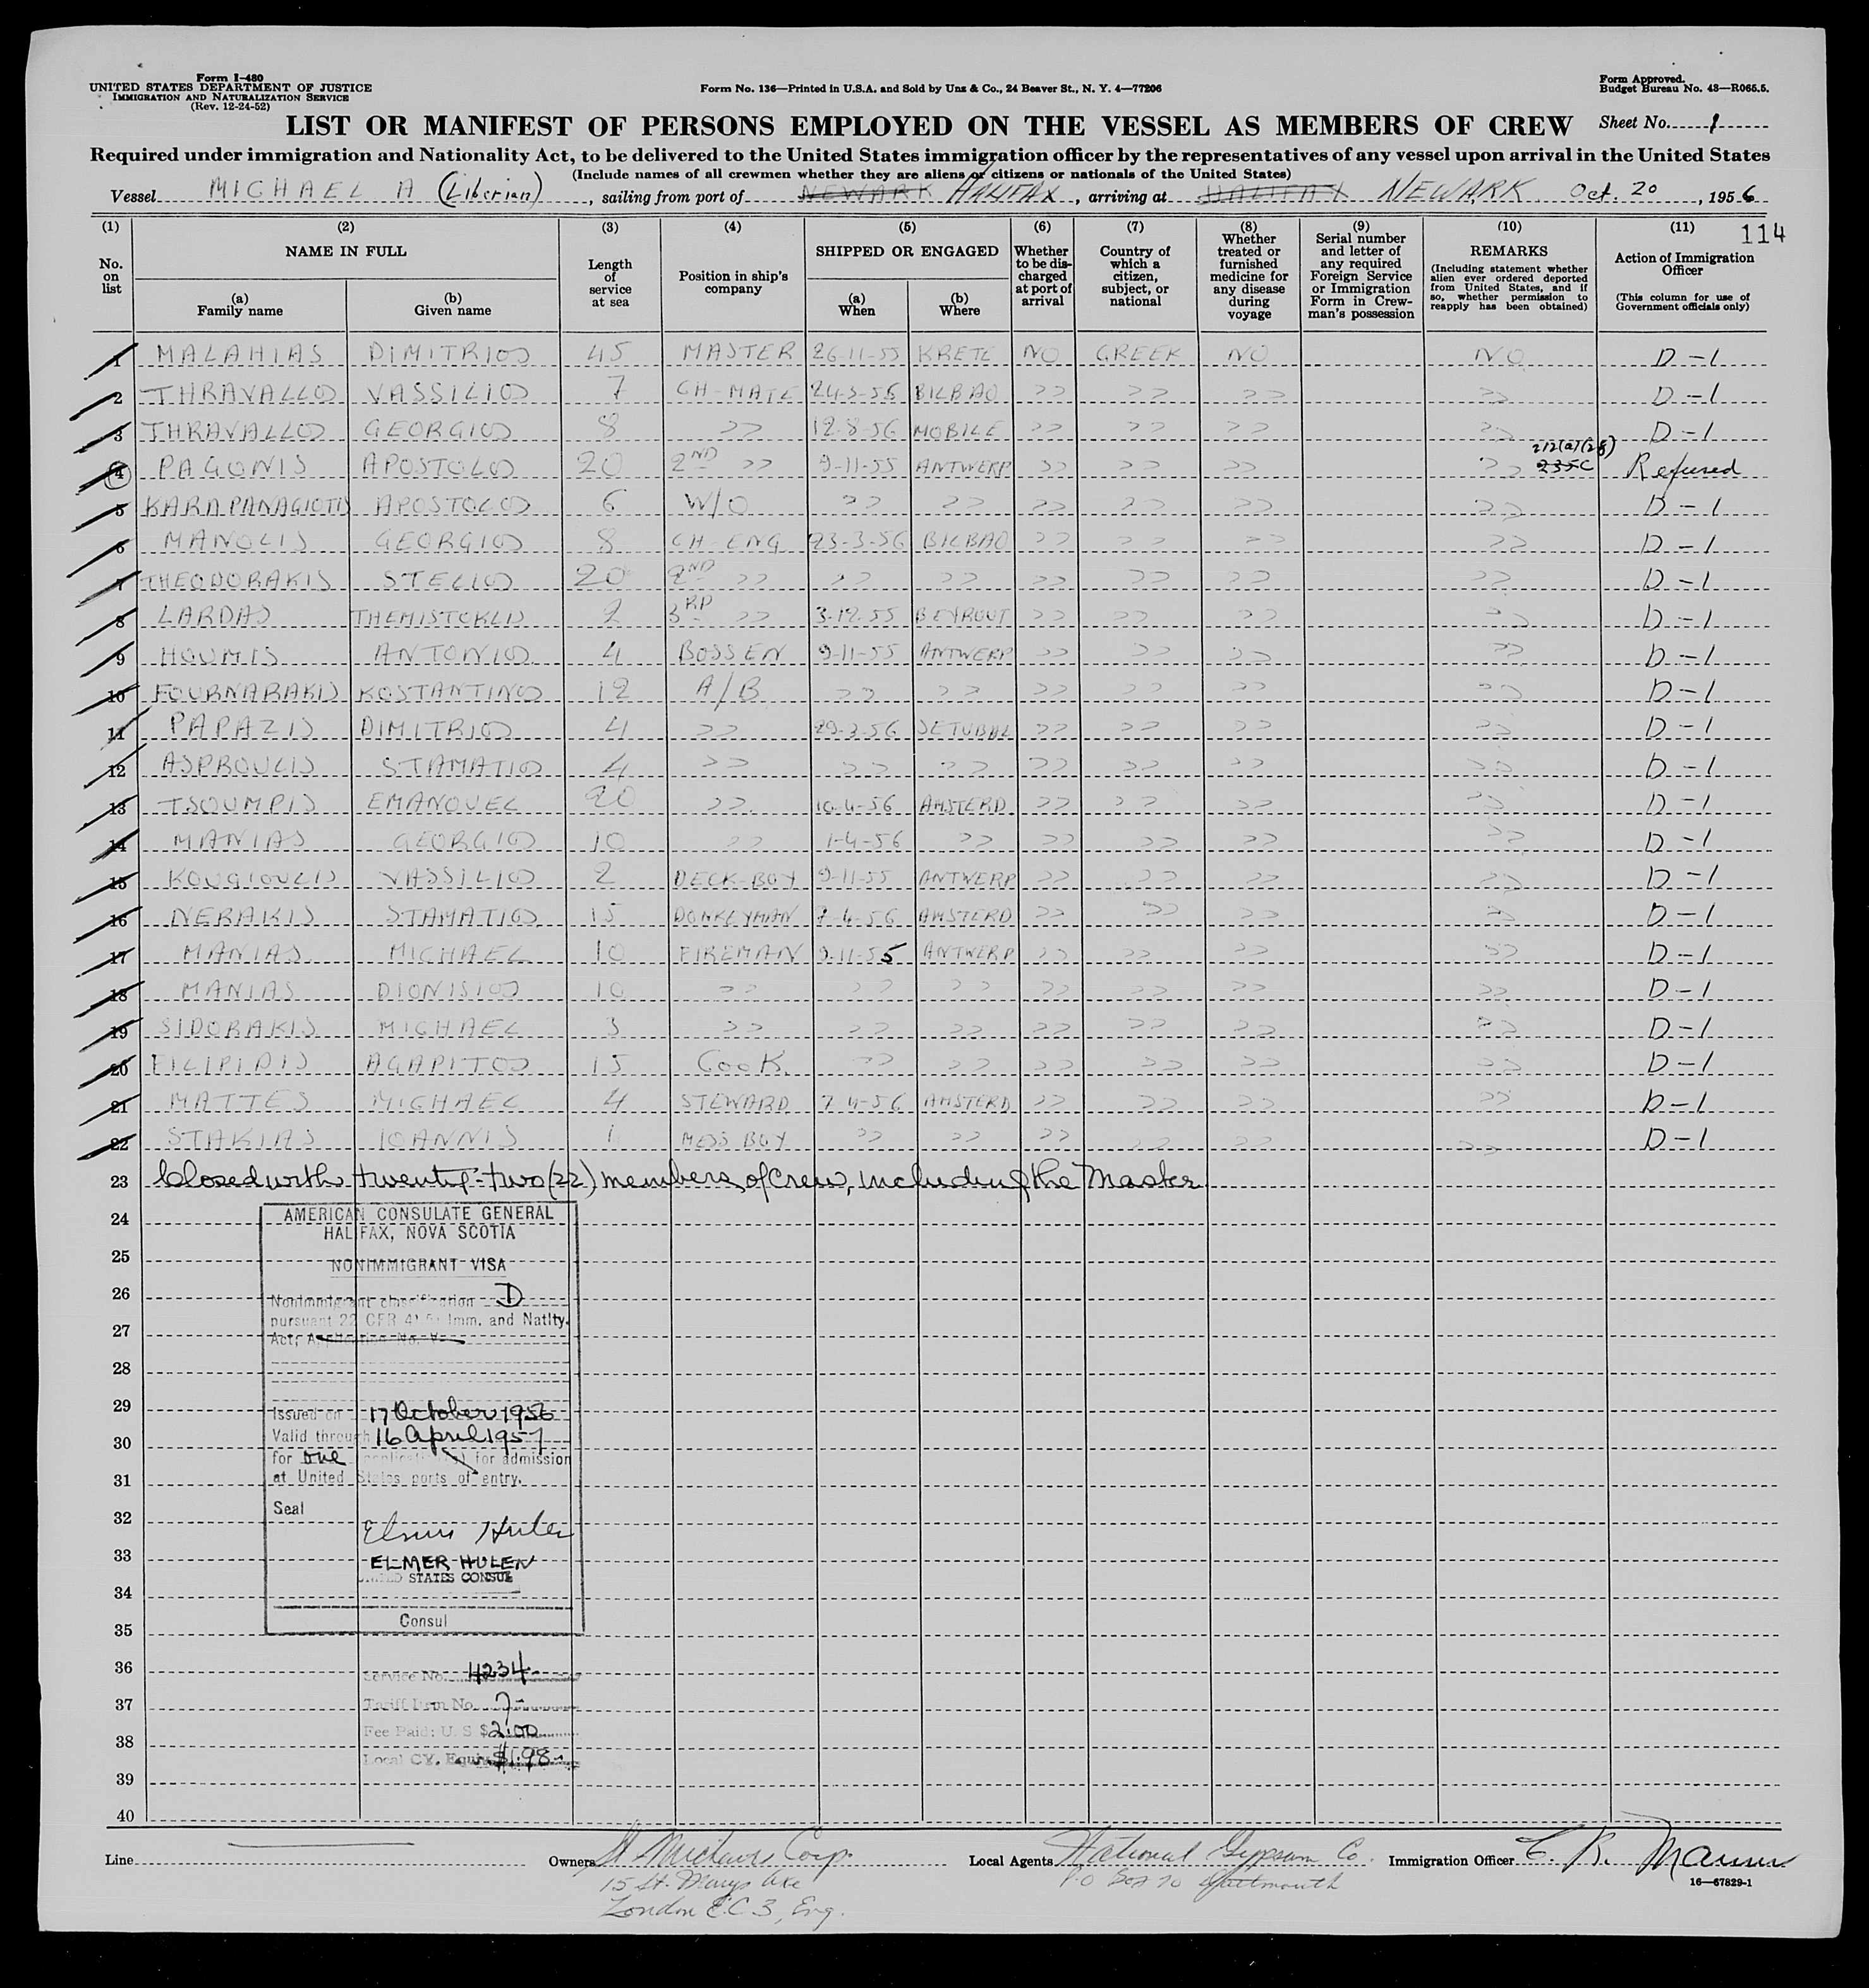 Form I-480
UNITED STATES DEPARTMENT OF JUSTICE
IMMIGRATION AND NATURALIZATION SERVICE
(Rev. 12-24-52)
Form No. 136—Printed in U.S.A. and Sold by Unz & Co., 24 Beaver St., N. Y. 4—77206
Form Approved.
Budget Bureau No. 43—R065.5.
LIST OR MANIFEST OF PERSONS EMPLOYED ON THE VESSEL AS MEMBERS OF CREW Sheet No. 1
Required under immigration and Nationality Act, to be delivered to the United States immigration officer by the representatives of any vessel upon arrival in the United States
(Include names of all crewmen whether they are aliens or citizens or nationals of the United States)
Vessel MICHAEL A (Liberian), sailing from port of NEWARK HALIFAX, arriving at HALIFAX NEWARK Oct. 20, 1956
114
(1) No. on list
(2) NAME IN FULL
(a) Family name
(b) Given name
(3) Length of service at sea
(4) Position in ship's company
(5) SHIPPED OR ENGAGED
(a) When
(b) Where
(6) Whether to be discharged at port of arrival
(7) Country of which a citizen, subject, or national
(8) Whether treated or furnished medicine for any disease during voyage
(9) Serial number and letter of any required Foreign Service or Immigration Form in Crewman's possession
(10) REMARKS (Including statement whether alien ever ordered deported from United States, and if so, whether permission to reapply has been obtained)
(11) Action of Immigration Officer (This column for use of Government officials only)
1 MALAHIAS DIMITRIOS 45 MASTER 26-11-55 KRETE NO GREEK NO NO D-1
2 THRAVALLOS VASSILIOS 7 CH-MATE 24-3-56 BILBAO >> >> >> >> D-1
3 THRAVALLOS GEORGIOS 8 >> 12-8-56 MOBILE >> >> >> >> D-1
4 PAGONIS APOSTOLOS 20 2ND >> 9-11-55 ANTWERP >> >> >> >> 212(a)(28) 235C Refused
5 KARAPANAGIOTIS APOSTOLOS 6 W/O >> >> >> >> >> >> D-1
6 MANOLIS GEORGIOS 8 CH-ENG 23-3-56 BILBAO >> >> >> >> D-1
7 THEODORAKIS STELIOS 20 2ND >> >> >> >> >> >> >> D-1
8 LARDAS THEMISTOKLIS 2 3RD >> 3-12-55 BEYROUT >> >> >> >> D-1
9 HOUMIS ANTONIOS 4 BOSSEN 9-11-55 ANTWERP >> >> >> >> D-1
10 FOURNARAKIS KOSTANTINOS 12 A/B >> >> >> >> >> >> D-1
11 PAPAZIS DIMITRIOS 4 >> 29-3-56 SETUBAL >> >> >> >> D-1
12 ASPROULIS STAMATIOS 4 >> >> >> >> >> >> >> D-1
13 TSOUMPIS EMANOUEL 20 >> 10-4-56 AMSTERD >> >> >> >> D-1
14 MANIAS GEORGIOS 10 >> 1-4-56 >> >> >> >> >> D-1
15 KOUGIOULIS VASSILIOS 2 DECK-BOY 9-11-55 ANTWERP >> >> >> >> D-1
16 NERAKIS STAMATIOS 15 DONKEYMAN 7-4-56 AMSTERD >> >> >> >> D-1
17 MANIAS MICHAEL 10 FIREMAN 9-11-55 ANTWERP >> >> >> >> D-1
18 MANIAS DIONISIOS 10 >> >> >> >> >> >> >> D-1
19 SIDORAKIS MICHAEL 3 >> >> >> >> >> >> >> D-1
20 FILIPIDIS AGAPITOS 15 COOK >> >> >> >> >> >> D-1
21 MATTES MICHAEL 4 STEWARD 7-4-56 AMSTERD >> >> >> >> D-1
22 STAKIAS IOANNIS 1 MESS BOY >> >> >> >> >> >> D-1
23 Closed with twenty-two (22) members of Crew, including the Master
24
25
26
27
28
29
30
31
32
33
34
35
36
37
38
39
40
AMERICAN CONSULATE GENERAL
HALIFAX, NOVA SCOTIA
NONIMMIGRANT VISA
Nonimmigrant classification D
pursuant 22 CFR 41.5; Imm. and Natlty.
Act; Application No. V
Issued on 17 October 1956
Valid through 16 April 1957
for one application(s) for admission
at United States ports of entry.
Seal
Elmer Hulen
ELMER HULEN
UNITED STATES CONSUL
Consul
Service No. 4234
Tariff Item No. 7
Fee Paid: U.S $2.00
Local CY. Equiv. $1.98
Line
Owners St Corp.
15 St. Marys Axe
London E.C.3, Eng.
Local Agents National Gypsum Co.
P.O Box 70 Dartmouth
Immigration Officer
16—67829-1